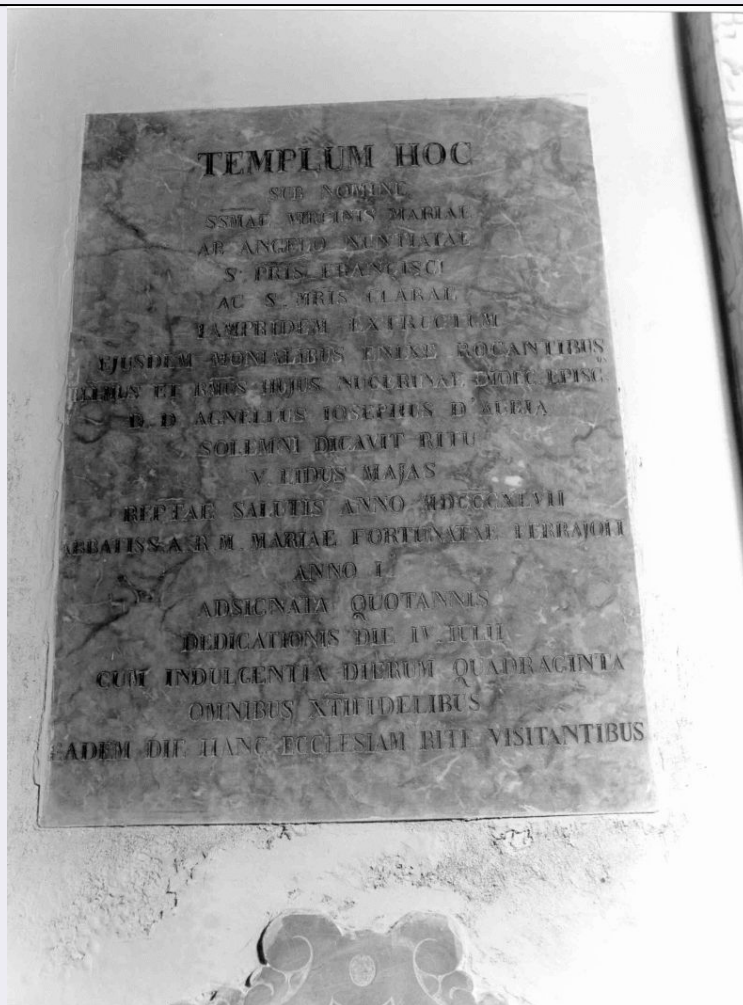 TEMPLUM HOC
SUB NOMINE
SSMAE VIRGINIS MARIAE
AB ANGELO NUNTIATAE
S. PRIS FRANCISCI
AC S. MRIS CLARAE
IAMPRIDEM EXTRUCTUM
EJUSDEM MONIALIBUS ENIXE ROGANTIBUS
ET HUJUS NUCERINAE DIOEC EPISC
D. D AGNELLUS IOSEPHUS D'AURIA
SOLEMNI DICAVIT RITU
V. IIDUS MAJAS
REPTAE SALUTIS ANNO MDCCCXLVII
ABBATISSA R. M. MARIAE FORTUNATAE FERRAJOLI
ANNO I.
ADSIGNATA QUOTANNIS
DEDICATIONIS DIE IV IULII
CUM INDULGENTIA DIERUM QUADRAGINTA
OMNIBUS XTIFIDELIBUS
EADEM DIE HANC ECCLESIAM RITE VISITANTIBUS